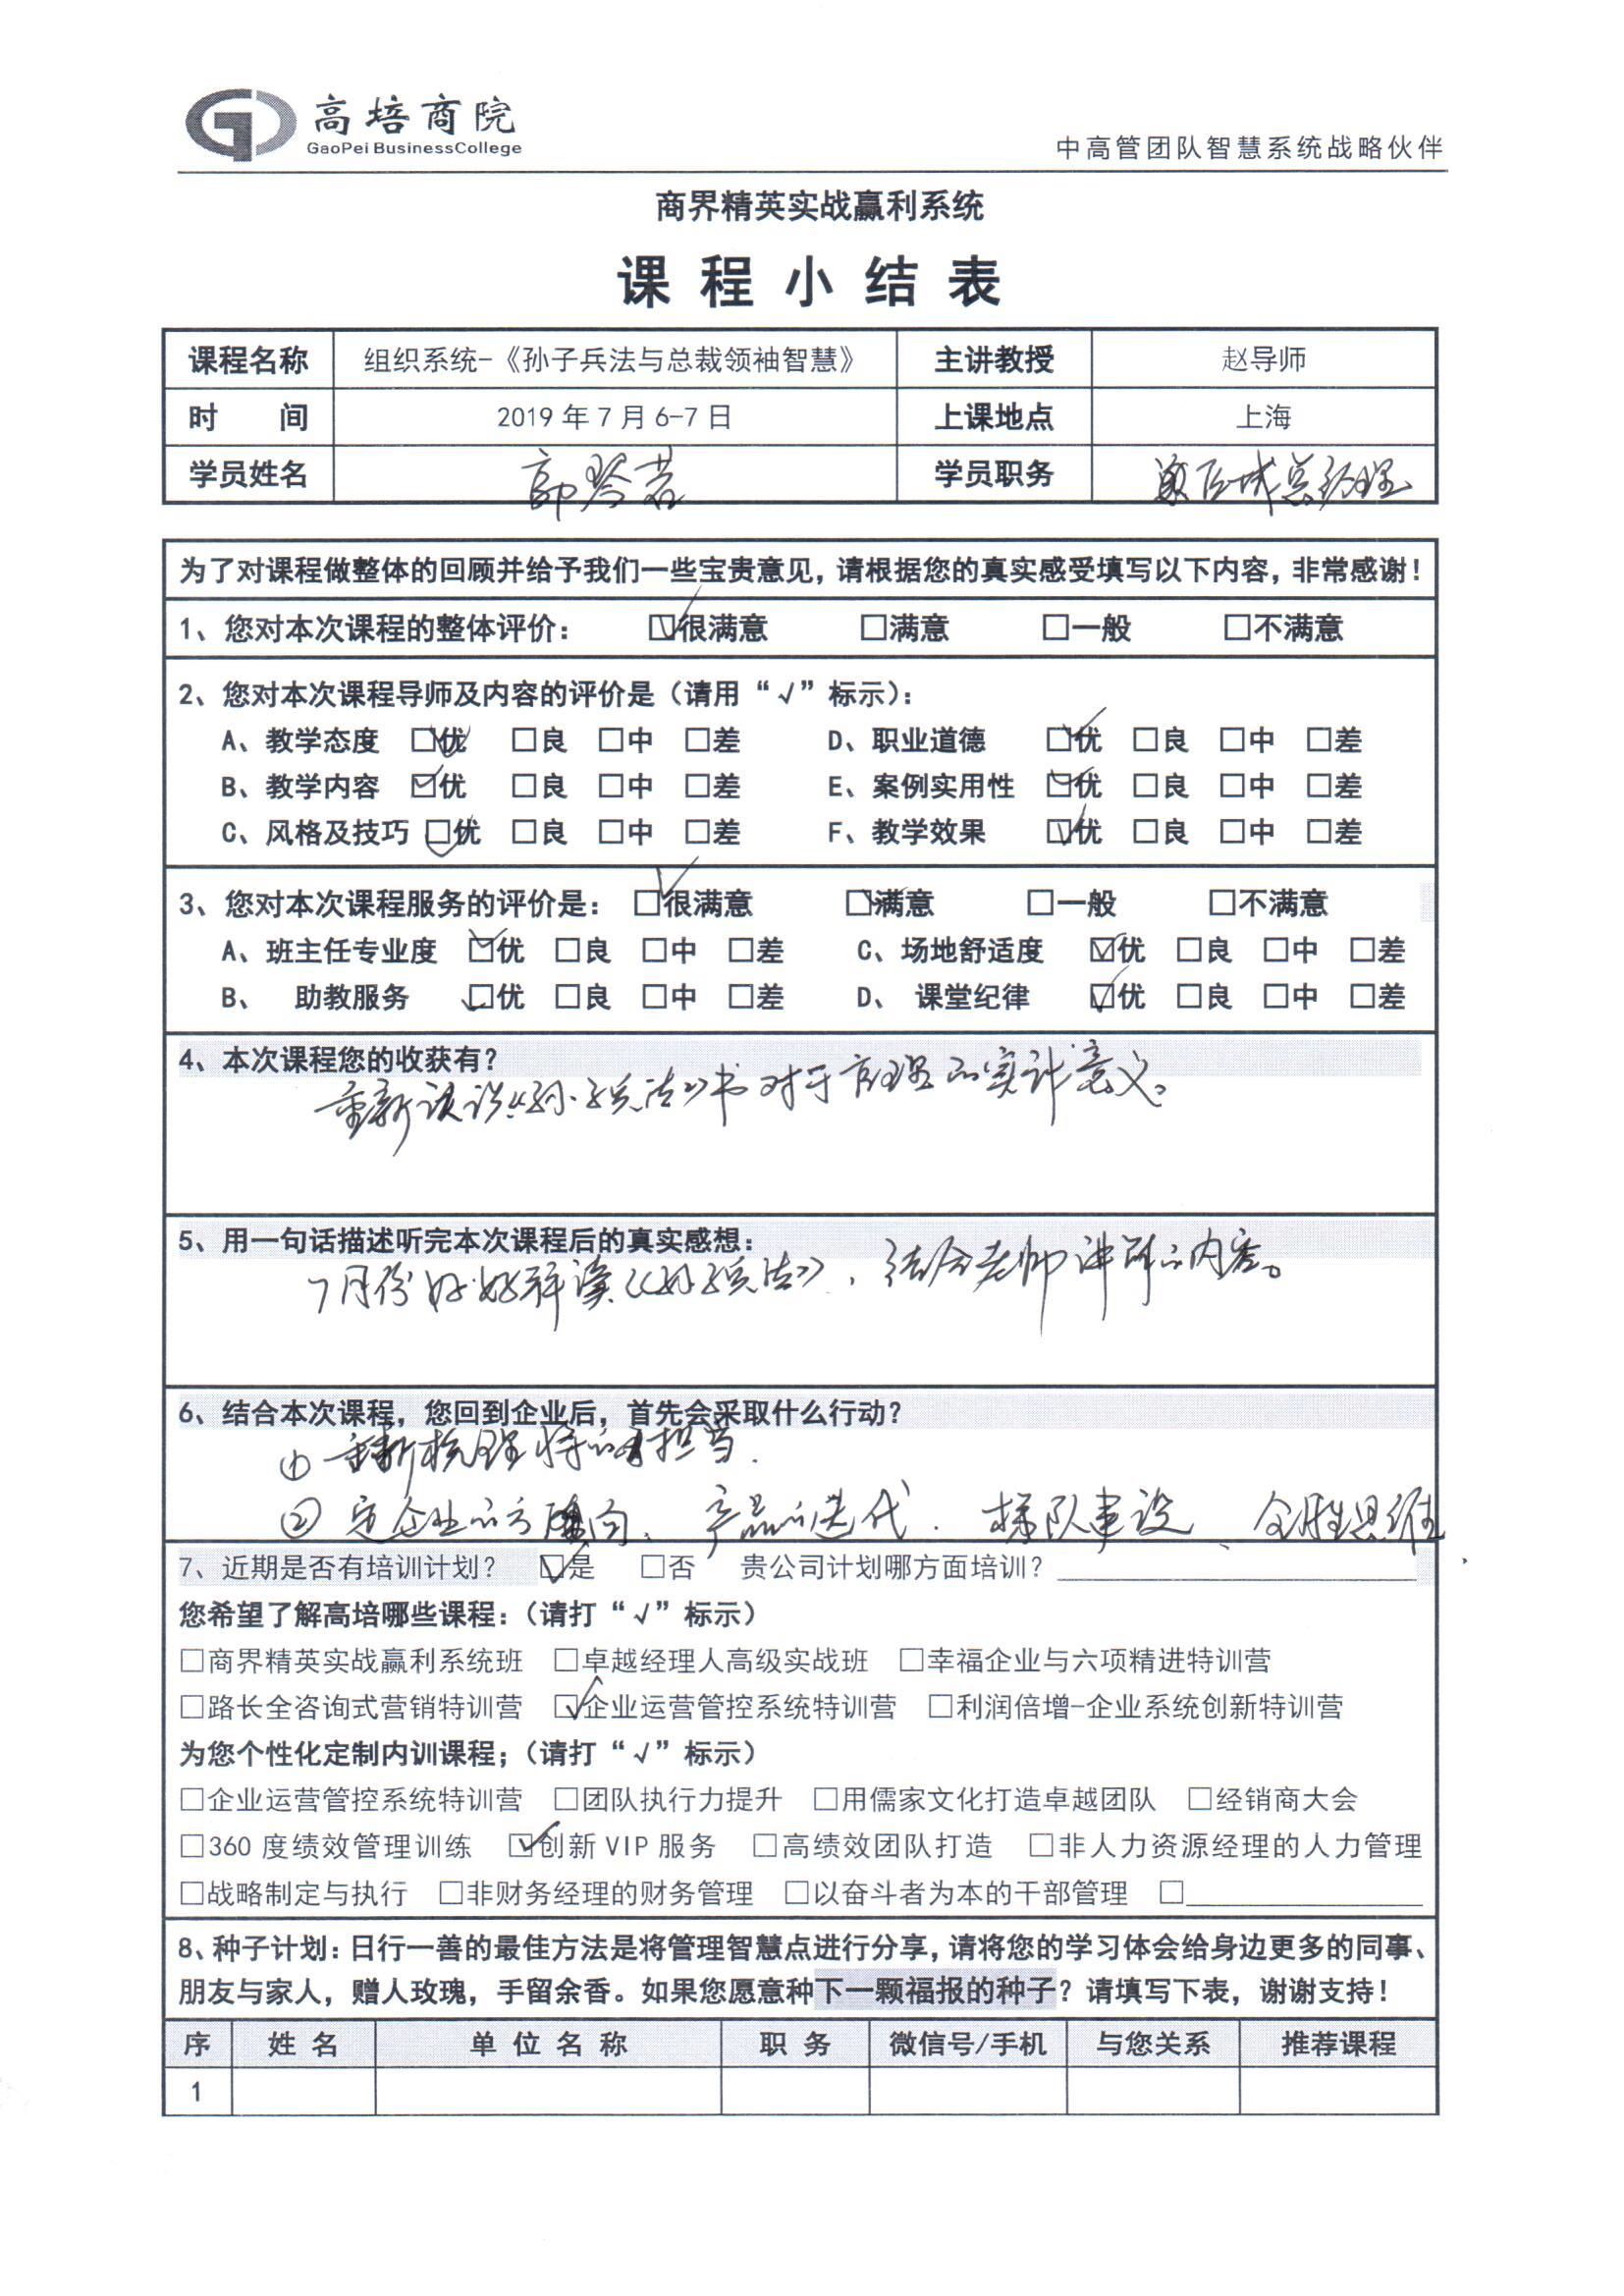 高培商院
GaoPei BusinessCollege
中高管团队智慧系统战略伙伴
商界精英实战赢利系统
课程小结表
课程名称 组织系统-《孙子兵法与总裁领袖智慧》 主讲教授 赵导师
时 间 2019年7月6-7日 上课地点 上海
学员姓名 郭琴芸 学员职务 区域总经理
为了对课程做整体的回顾并给予我们一些宝贵意见，请根据您的真实感受填写以下内容，非常感谢！
1、您对本次课程的整体评价： ☑很满意 □满意 □一般 □不满意
2、您对本次课程导师及内容的评价是（请用“√”标示）：
A、教学态度 ☑优 □良 □中 □差 D、职业道德 ☑优 □良 □中 □差
B、教学内容 ☑优 □良 □中 □差 E、案例实用性 ☑优 □良 □中 □差
C、风格及技巧 ☑优 □良 □中 □差 F、教学效果 ☑优 □良 □中 □差
3、您对本次课程服务的评价是： ☑很满意 ☑满意 □一般 □不满意
A、班主任专业度 ☑优 □良 □中 □差 C、场地舒适度 ☑优 □良 □中 □差
B、 助教服务 ☑优 □良 □中 □差 D、 课堂纪律 ☑优 □良 □中 □差
4、本次课程您的收获有？
重新认识《孙子兵法》书对于管理的实际意义。
5、用一句话描述听完本次课程后的真实感想：
7月份好好拜读《孙子兵法》，结合老师讲解的内容。
6、结合本次课程，您回到企业后，首先会采取什么行动？
① 重新梳理将的担当.
② 定企业的方向、产品的迭代、梯队建设、全胜思维.
7、近期是否有培训计划？ ☑是 □否 贵公司计划哪方面培训？
您希望了解高培哪些课程：（请打“√”标示）
□商界精英实战赢利系统班 □卓越经理人高级实战班 □幸福企业与六项精进特训营
□路长全咨询式营销特训营 ☑企业运营管控系统特训营 □利润倍增-企业系统创新特训营
为您个性化定制内训课程；（请打“√”标示）
□企业运营管控系统特训营 □团队执行力提升 □用儒家文化打造卓越团队 □经销商大会
□360度绩效管理训练 ☑创新VIP服务 □高绩效团队打造 □非人力资源经理的人力管理
□战略制定与执行 □非财务经理的财务管理 □以奋斗者为本的干部管理 □
8、种子计划：日行一善的最佳方法是将管理智慧点进行分享，请将您的学习体会给身边更多的同事、
朋友与家人，赠人玫瑰，手留余香。如果您愿意种下一颗福报的种子？请填写下表，谢谢支持！
序 姓名 单位名称 职务 微信号/手机 与您关系 推荐课程
1